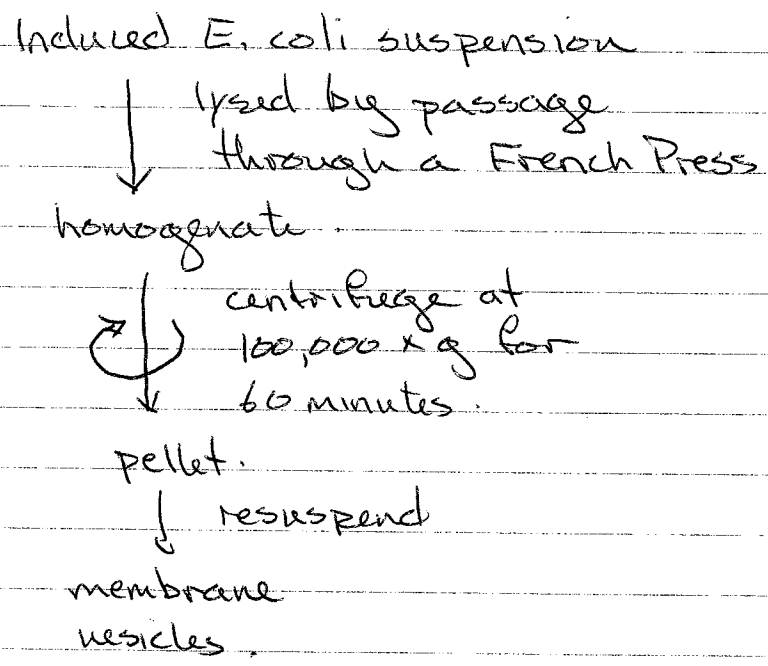 Induced E. coli suspension
lysed by passage
through a French Press
homogenate.
centrifuge at
100,000 x g for
60 minutes.
pellet.
resuspend
membrane
vesicles.